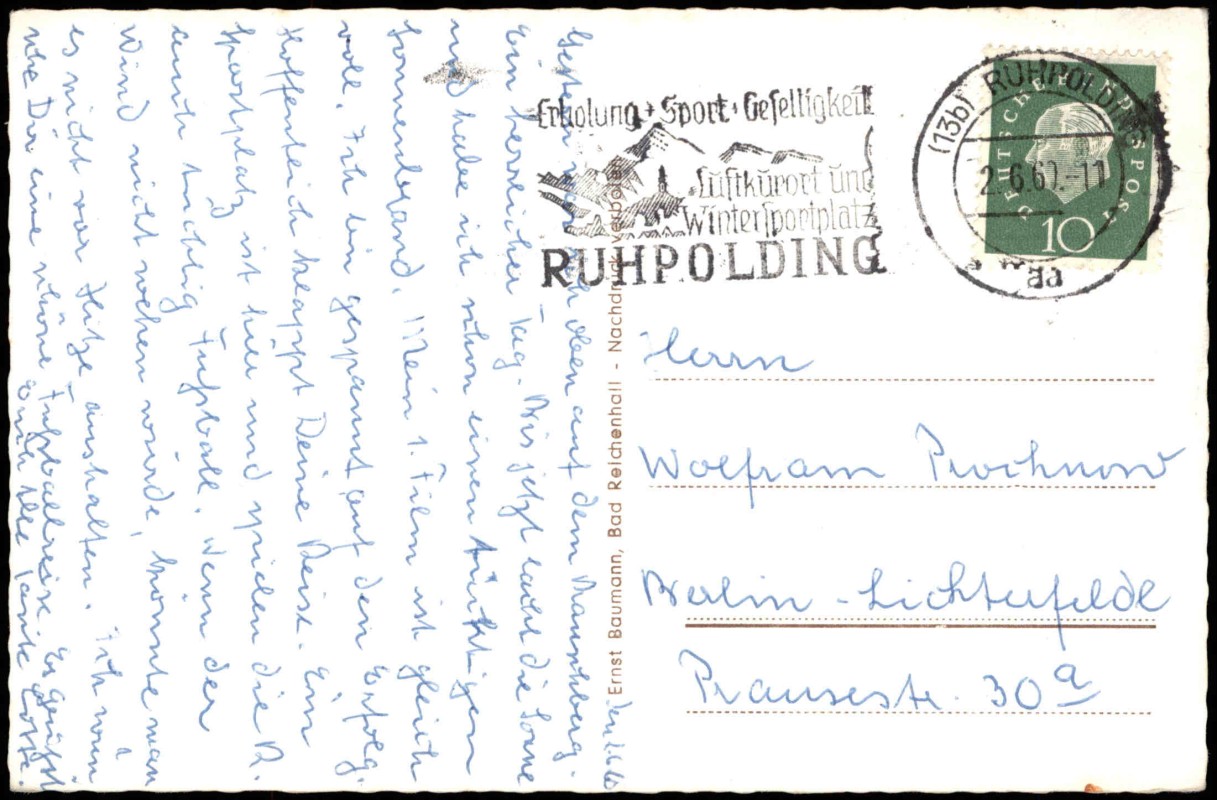 Erholung + Sport + Geselligkeit
Luftkurort und
Wintersportplatz
RUHPOLDING
(13b) RUHPOLDING
2.6.60.-11
aa
DEUTSCHE BUNDESPOST
10
Ernst Baumann, Bad Reichenhall - Nachdruck verboten
Herrn
Wolfram Prochnow
Berlin-Lichterfelde
Prausestr. 30a
den 1.6.60
Gestern war ich oben auf dem Rauschberg.
Ein herrlicher Tag. Bis jetzt lacht die Sonne
und habe ich schon einen tüchtigen
Sonnenbrand. Mein 1. Film ist gleich
voll. Ich bin gespannt auf den Erfolg.
Hoffentlich klappt Deine Reise. Ein
Sportplatz ist hier und spielen die R.
auch tüchtig Fußball. Wenn der
Wind nicht wehen würde, könnte man
es nicht vor Hitze aushalten. Ich wün
sche Dir eine schöne Fußballreise. Es grüßt
Euch alle Tante Lotte.